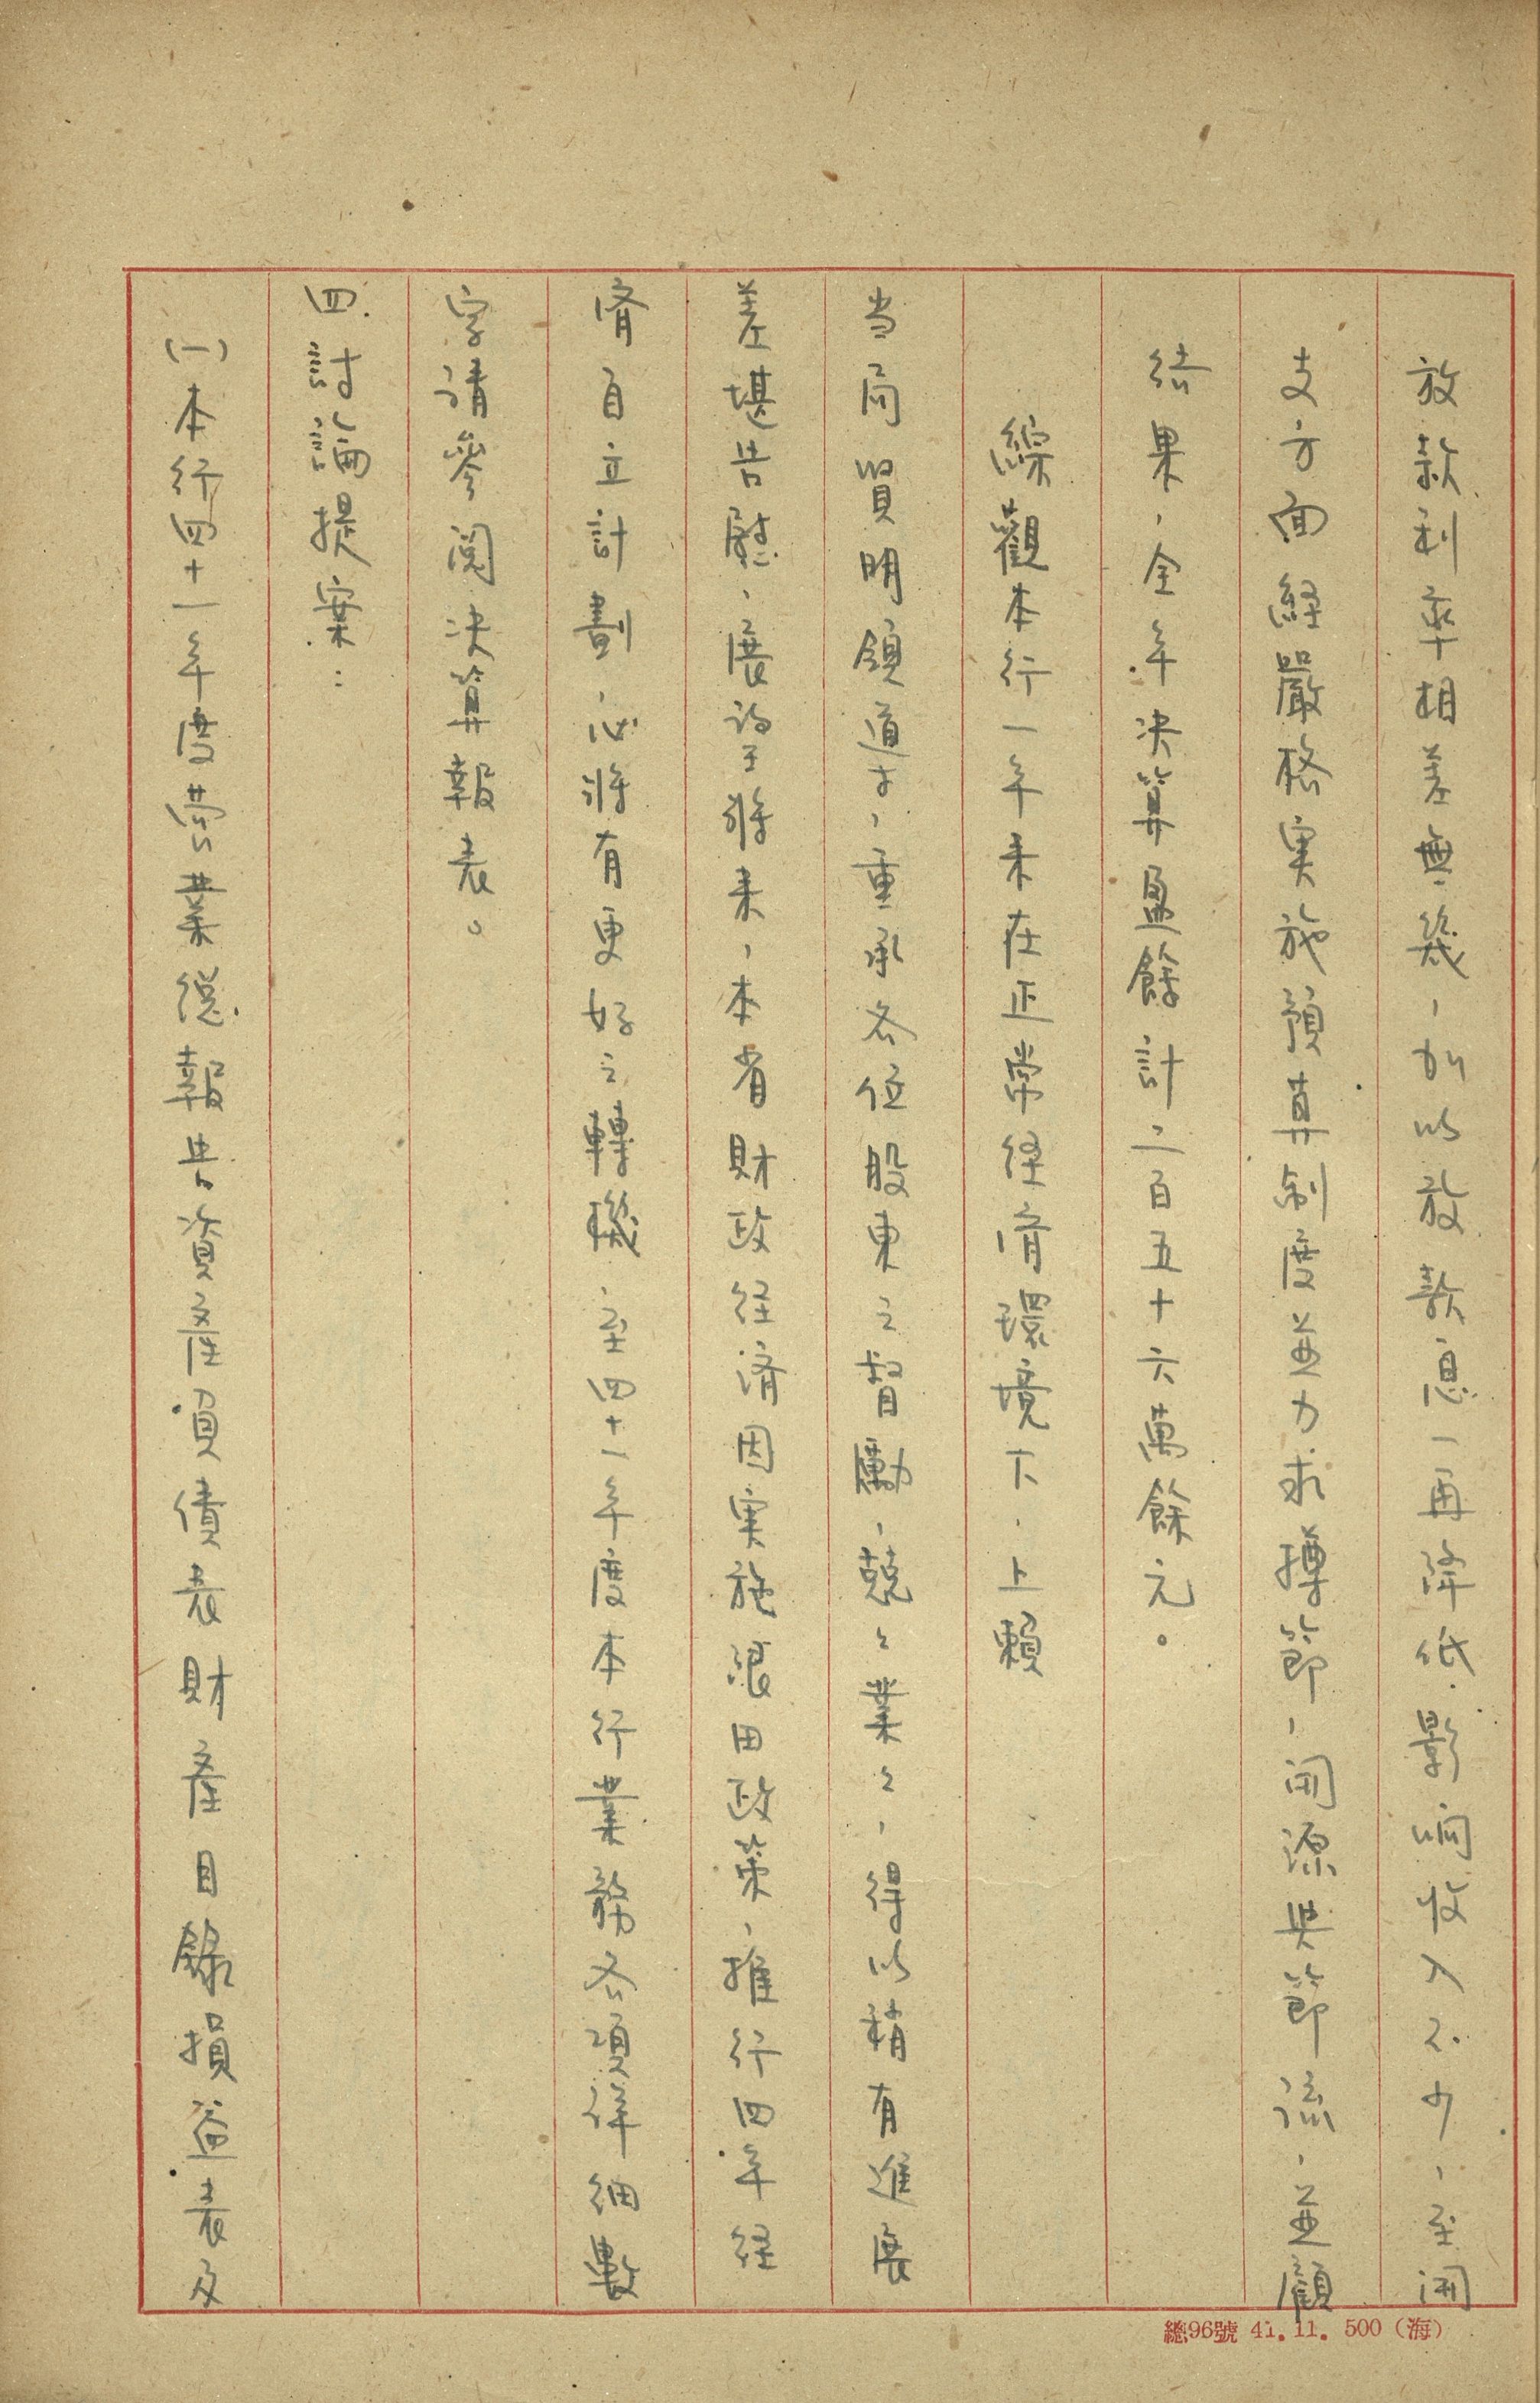 放款利率相差無幾，加以放款息一再降低影响收入不少，至開
支方面経嚴格実施預算制度並力求撙節，開源與節流，並顧
結果，全年決算盈餘計二百五十六萬餘元。
綜觀本行一年來在正常経済環境下，上賴
当局賢明領導，重承各位股東之督勵，兢々業々，得以稍有進展
差堪告慰，展望将来，本省財政経済因実施限田政策，推行四年経
済自立計劃，必将有更好之轉機，至四十一年度本行業務各項詳細數
字請參閱決算報表。
四.討論提案：
(一)本行四十一年度營業總報告資產負債表財產目錄損益表及
總96號 41. 11. 500（海）